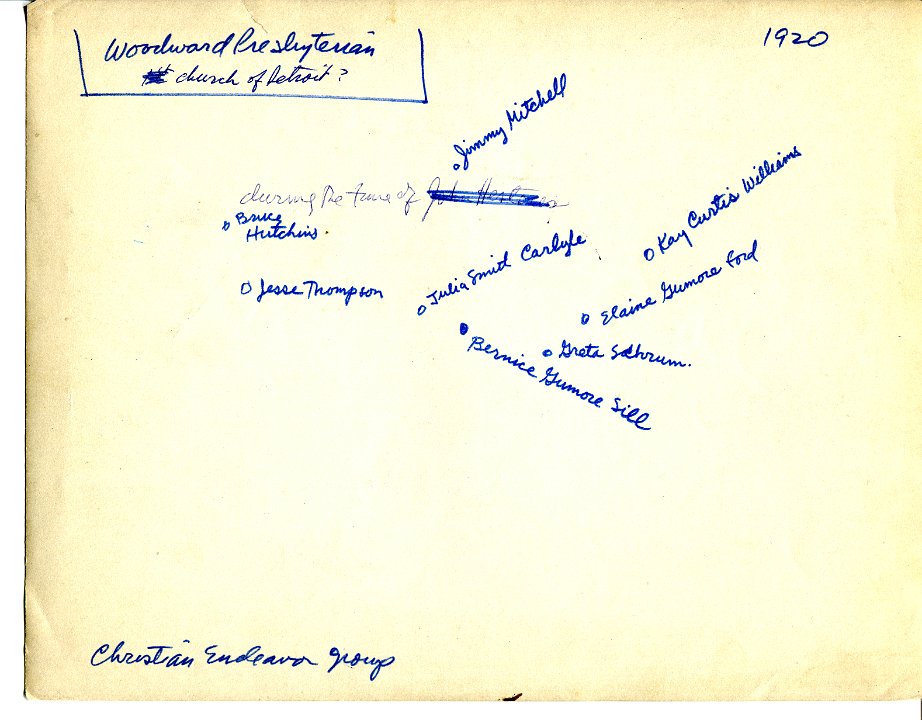 Woodward Presbyterian
church of Detroit?
1920
Jimmy Mitchell
during the time of
Bruce
Hutchins.
Kay Curtis Williams
Julia Smith Carlyle
Elaine Gumore Ford
Jesse Thompson
Greta Schrum.
Bernice Gumore Sill
Christian Endeavor group